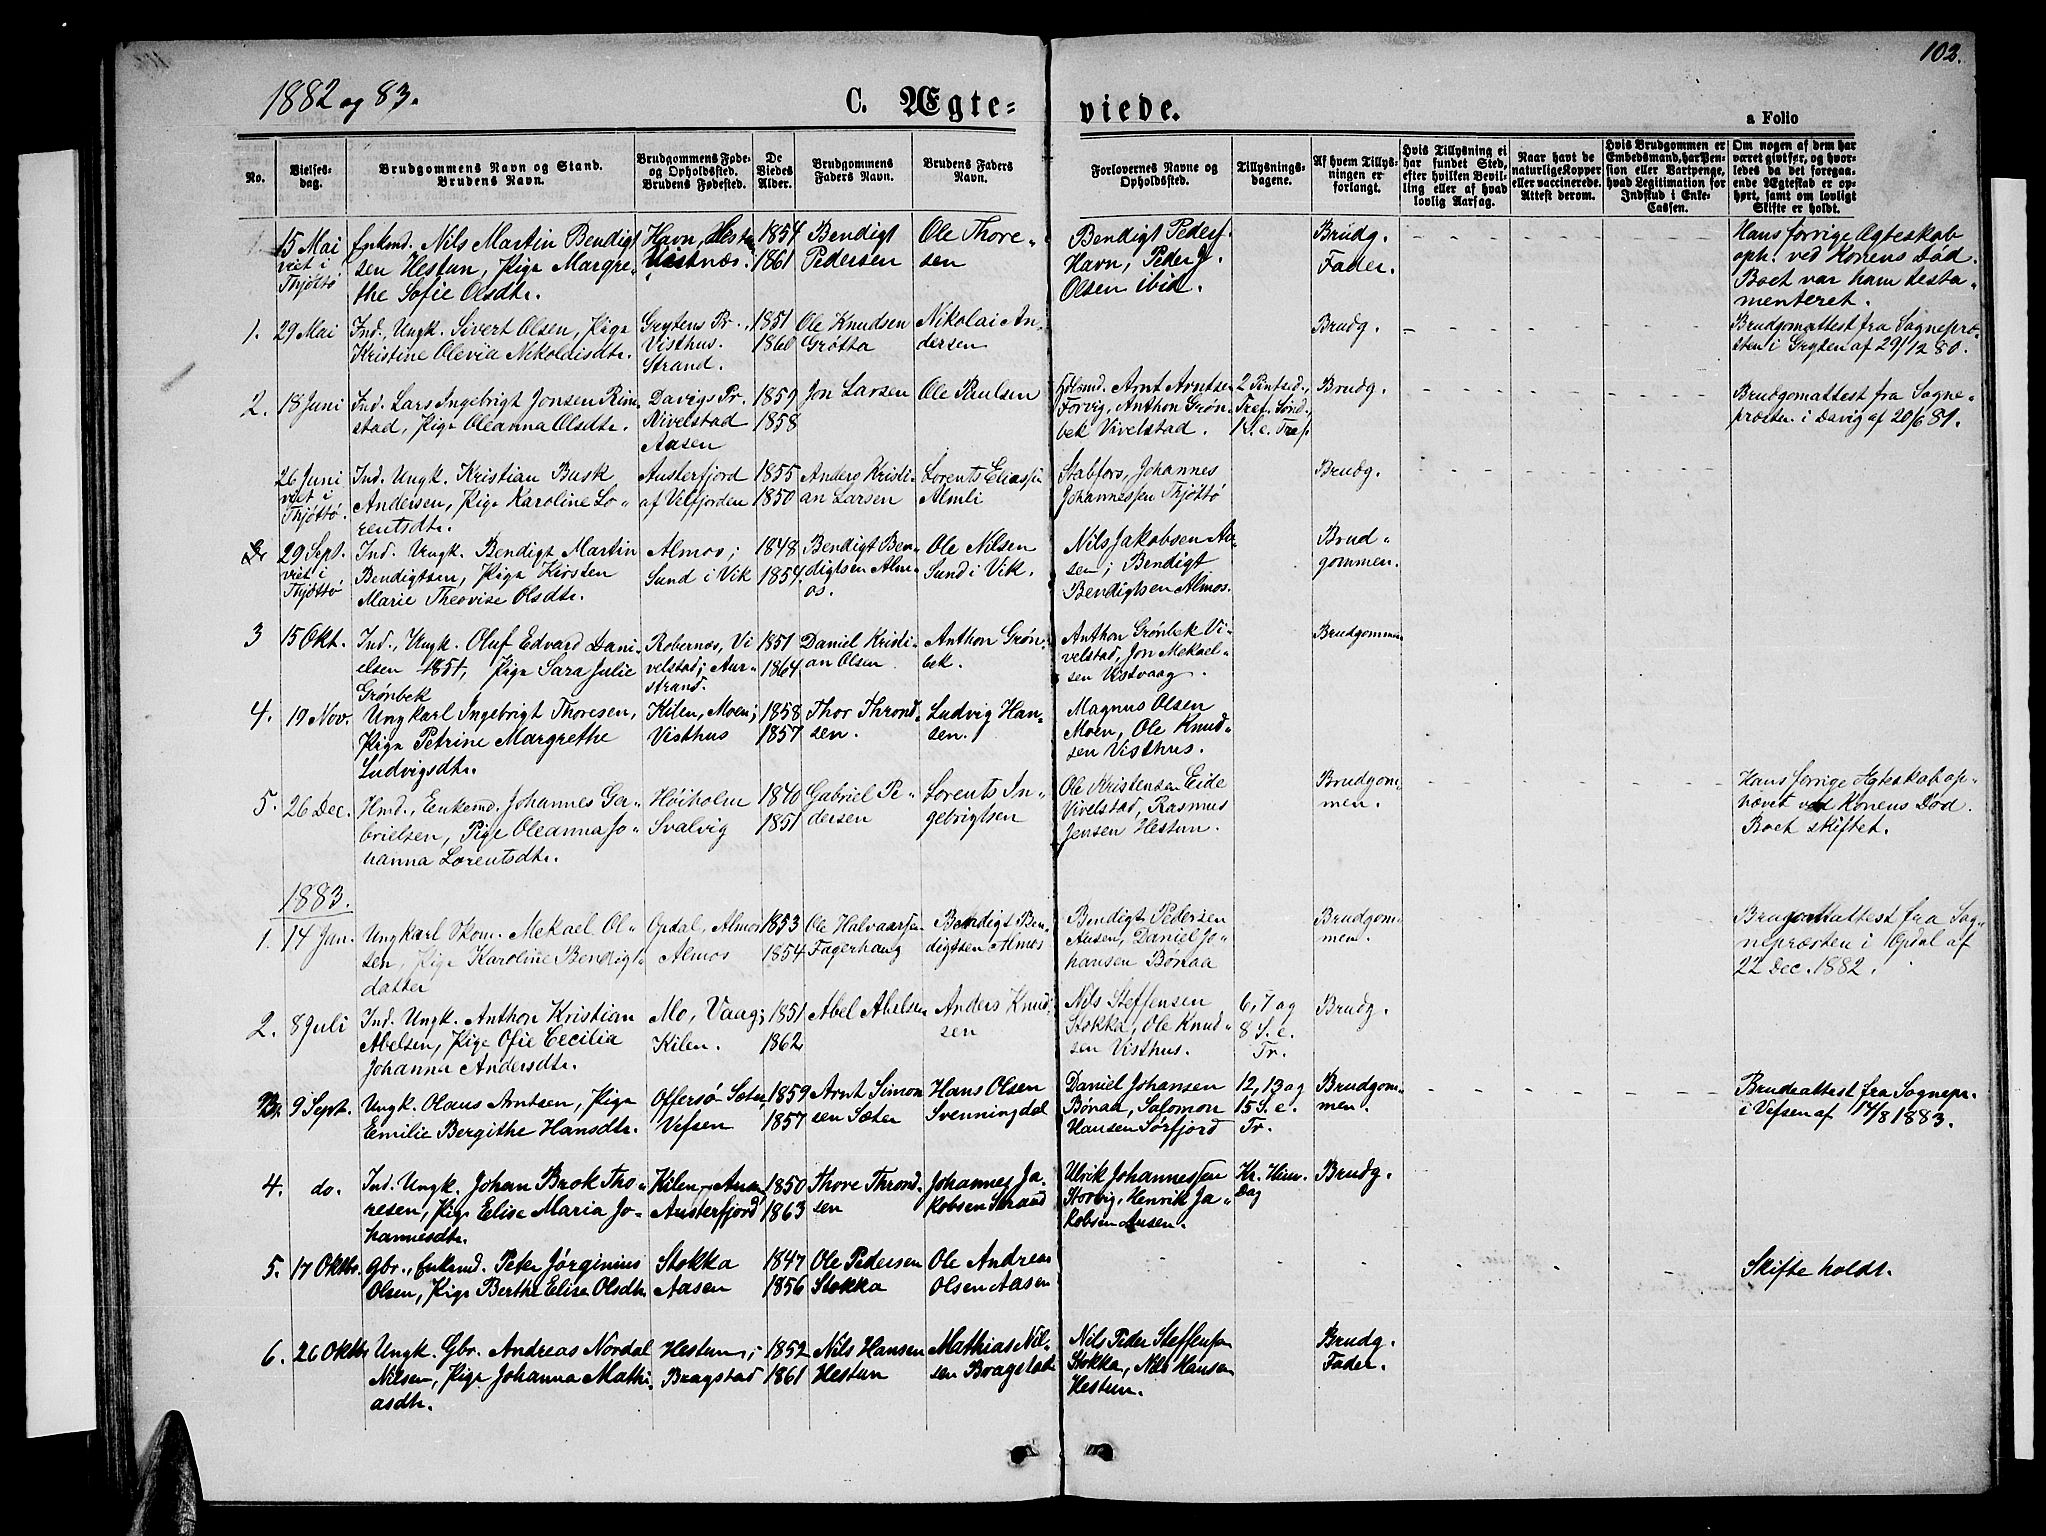 102.
1882 og 83.
C. Ægte- viede.
a Folio
No.
Vielses-
dag.
Brudgommens Navn og Stand.
Brudens Navn.
Brudgommens Føde-
og Opholdssted.
Brudens Fødested.
De
Viedes
Alder.
Brudgommens
Faders Navn.
Brudens Faders
Navn.
Forlovernes Navne og
Opholdssted.
Tillysnings-
dagene.
Af hvem Tillys-
ningen er
forlangt.
Hvis Tillysning ei
har fundet Sted,
efter hvilken Bevil-
ling eller af hvad
lovlig Aarsag.
Naar havt de
naturlige Kopper
eller vaccinerede.
Attest derom.
Hvis Brudgommen er
Embedsmand, har Pen-
sion eller Vartpenge,
hvad Legitimation for
Indskud i Enke-
Cassen.
Om nogen af dem har
været givt før, og hvor-
ledes da det foregaa-
ende Ægteskab er op-
hørt, samt om lovligt
Skifte er holdt.
15 Mai
viet i
Thjöttö
Enkmd. Nils Martin Bendigt
sen Hestun, Pige Margre-
the Sofie Olsdtr.
Havn, Hestun
Vestnæs.
1854
1861
Bendigt
Pedersen
Ole Thore-
sen
Bendigt Peders.
Havn, Peder J.
Olsen ibid.
Brudg.
Fader.
Hans forrige Ægteskab
oph. ved Konens Död.
Boet var ham testa-
menteret.
1.
29 Mai
Ind. Ungk. Sivert Olsen, Pige
Kristine Olevia Nikolaisdtr.
Grytens Pr.,
Visthus.
Strand.
1851
1860
Ole Knudsen
Grötta
Nikolai An-
dersen
Brudg.
Brudgomattest fra Sognepræ-
sten i Gryten af 29/12 80.
2.
18 Juni
Ind. Lars Ingebrigt Jonsen Rim
stad, Pige Oleanna Olsdtr.
Davigs Pr.
Vivelstad
Aasen
1859
1858
Jon Larsen
Ole Paulsen
Hölmd. Arnt Arntsen
Forvig, Anthon Grön-
bek Vivelstad.
2 Pintsed.,
Tref. Sönd.
1 S. e. Tref.
Brudg.
Brudgomattest fra Sogne-
præsten i Davig af 20/6 81.
26 Juni
viet i
Thjöttö.
Ind. Ungk. Kristian Busk
Andersen, Pige Karoline Lo-
rentsdtr.
Austerfjord
af Velfjorden
1855
1850
Anders Kristi-
an Larsen
Lorents Eliass.
Almli
Stabfors, Johannes
Johannessen Thjöttö
Brudg.
29 Sept.
viet i
Thjöttö
Ind. Ungk. Bendigt Martin
Bendigtsen, Pige Kirsten
Marie Theovise Olsdtr.
Almos;
Sund i Vik
1848
1854.
Bendigt Ben-
digtsen Alm-
os.
Ole Nilsen
Sund i Vik.
Nils Jakobsen Aa-
sen; Bendigt
Bendigtsen Almos.
Brud-
gommen.
3
15 Okt.
Ind., Ungk. Oluf Edvard Dani-
elsen 1851, Pige Sara Julie
Grönbek
Robernos, Vi
velstad; Aur-
strand.
1851
1864
Daniel Kristi-
an Olsen
Anthon Grön-
bek.
Anthon Grönbek Vi-
velstad, Jon Mekael-
sen Vistvaag.
Brudgommen
4.
19 Nov.
Ungkarl Ingebrigt Thoresen,
Pige Petrine Margrethe
Ludvigsdtr.
Kilen, Moen;
Visthus
1858
1857
Thor Thrond-
sen.
Ludvig Han-
sen.
Magnus Olsen
Moen, Ole Knud-
sen Visthus.
5.
26 Dec.
Hmd., Enkemd. Johannes Ga-
brielsen, Pige Oleanna Jo-
hanna Lorentsdtr.
Höiholm
Svalvig
1840
1851
Gabriel Pe-
dersen
Lorents In-
gebrigtsen
Ole Kristensen Eide
Vivelstad, Rasmus
Jensen Hestun.
Brudgom-
men.
Hans forrige Ægteskab op-
hævet ved Konens Död.
Boet skiftet.
1883.
1.
14 Jan.
Ungkarl Ökom. Mekael Ol-
sen, Pige Karoline Bendigts-
datter
Opdal, Almos
Almos
1853
1854
Ole Halvaarsen
Fagerhaug
Bendigt Ben-
digtsen Almos
Bendigt Pedersen
Aasen, Daniel Jo-
hansen Bönaa
Brudgom-
men.
Brudgomattest fra Sog-
nepræsten i Opdal af
22 Dec. 1882.
2.
8 Juli
Ind. Ungk. Anthon Kristian
Abelsen, Pige Ofie Cecilia
Johanna Andersdtr.
Mo, Vaag;
Kilen.
1851
1862
Abel Abelsen
Anders Knud-
sen
Nils Steffensen
Stokka, Ole Knud-
sen Visthus.
6, 7 og
8 S. e.
Tr.
Brudg.
3.
9 Sept.
Ungk. Olaus Arntsen, Pige
Emilie Bergithe Hansdtr.
Offersö Sæter,
Vefsen
1859
1857
Arnt Simon
sen Sæter
Hans Olsen
Svenningdal
Daniel Johansen
Bönaa, Salomon
Hansen Sörfjord
12, 13 og
15 S. e.
Tr.
Brudgom-
men.
Brudeattest fra Sognepr.
i Vefsen af 14/8 1883.
4.
do.
Ind. Ungk. Johan Brok Tho-
resen, Pige Elise Maria Jo-
hannesdtr.
Kilen, Aasen,
Austerfjord
1850
1863
Thore Thrond-
sen
Johannes Ja-
kobsen Strand
Ulrik Johannessen
Storvig, Henrik Ja-
kobsen Aasen.
Kr. Him.
Dag
Brudg.
5.
17 Oktbr.
Gbr., Enkmd. Peter Jörginius
Olsen, Pige Berthe Elise Olsdtr.
Stokka
Aasen
1847
1856
Ole Pedersen
Stokka
Ole Andreas
Olsen Aasen
Skifte holdt.
6.
26 Oktbr
Ungk. Gbr. Andreas Nordal
Nilsen, Pige Johanna Mathi-
asdtr.
Hestun;
Bragstad
1852
1861
Nils Hansen
Hestun
Mathias Nil-
sen Bragstad
Nils Peder Steffensen
Stokka, Nils Hansen
Hestun.
Brudg.
Fader.